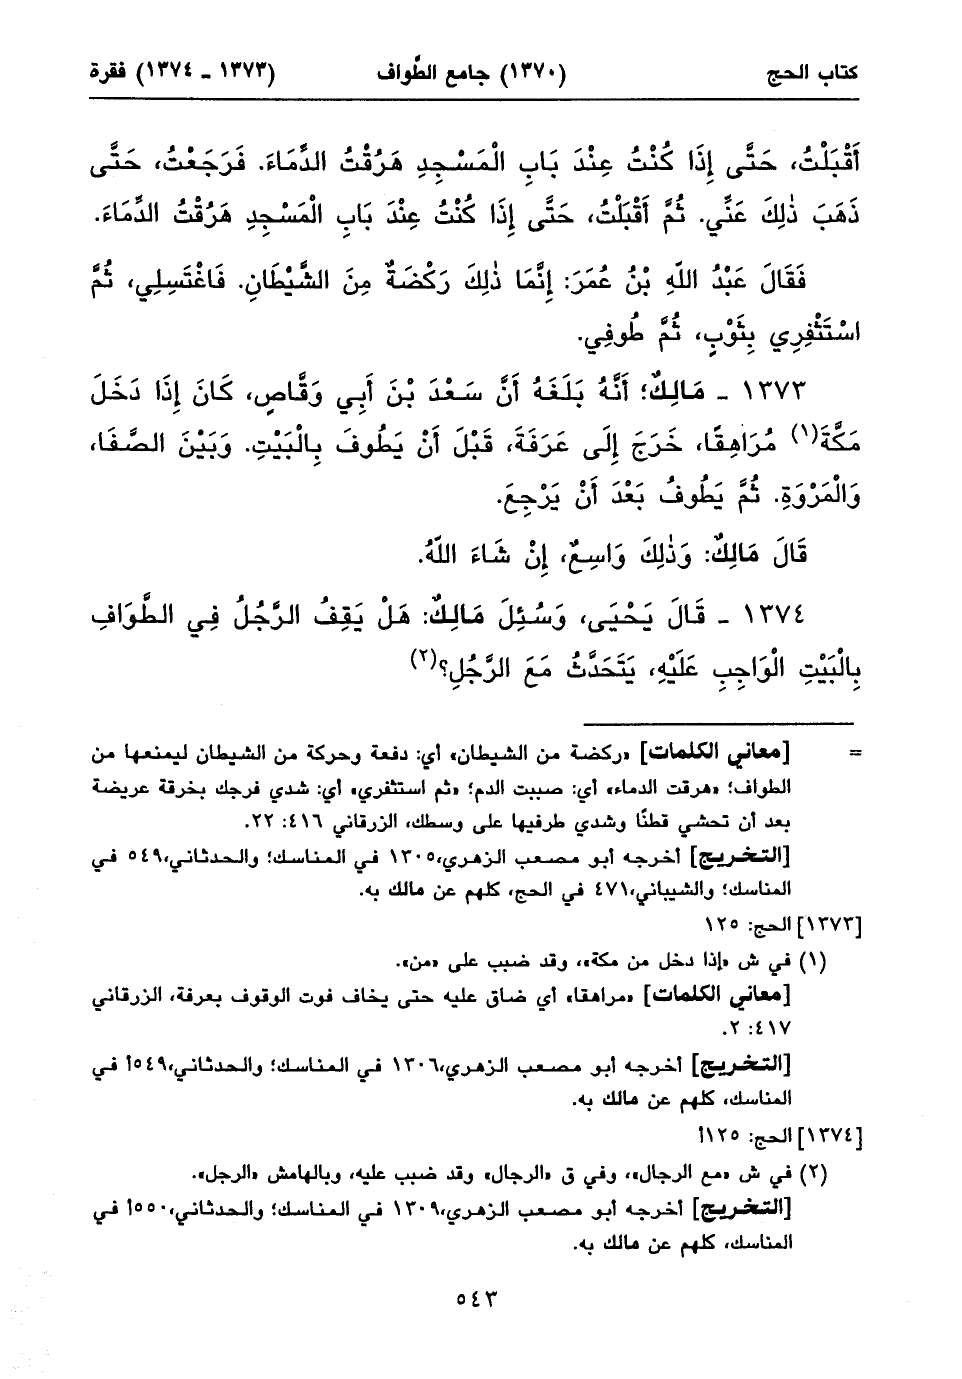 كتاب الحج (١٣٧٠) جامع الطَّواف (١٣٧٣ ـ ١٣٧٤) فقرة
أَقْبَلْتُ، حَتَّى إِذَا كُنْتُ عِنْدَ بَابِ الْمَسْجِدِ هَرَقْتُ الدَّمَاءَ. فَرَجَعْتُ، حَتَّى
ذَهَبَ ذٰلِكَ عَنِّي. ثُمَّ أَقْبَلْتُ، حَتَّى إِذَا كُنْتُ عِنْدَ بَابِ الْمَسْجِدِ هَرَقْتُ الدَّمَاءَ.
فَقَالَ عَبْدُ اللّٰهِ بْنُ عُمَرَ: إِنَّمَا ذٰلِكَ رَكْضَةٌ مِنَ الشَّيْطَانِ. فَاغْتَسِلِي، ثُمَّ
اسْتَثْفِرِي بِثَوْبٍ، ثُمَّ طُوفِي.
١٣٧٣ ـ مَالِكٌ؛ أَنَّهُ بَلَغَهُ أَنَّ سَعْدَ بْنَ أَبِي وَقَّاصٍ، كَانَ إِذَا دَخَلَ
مَكَّةَ(١) مُرَاهِقًا، خَرَجَ إِلَى عَرَفَةَ، قَبْلَ أَنْ يَطُوفَ بِالْبَيْتِ. وَبَيْنَ الصَّفَا،
وَالْمَرْوَةِ. ثُمَّ يَطُوفُ بَعْدَ أَنْ يَرْجِعَ.
قَالَ مَالِكٌ: وَذٰلِكَ وَاسِعٌ، إِنْ شَاءَ اللّٰهُ.
١٣٧٤ ـ قَالَ يَحْيَى، وَسُئِلَ مَالِكٌ: هَلْ يَقِفُ الرَّجُلُ فِي الطَّوَافِ
بِالْبَيْتِ الْوَاجِبِ عَلَيْهِ، يَتَحَدَّثُ مَعَ الرَّجُلِ؟(٢)
= [معاني الكلمات] «ركضة من الشيطان» أي: دفعة وحركة من الشيطان ليمنعها من
الطواف؛ «هرقت الدماء» أي: صببت الدم؛ «ثم استثفري» أي: شدي فرجك بخرقة عريضة
بعد أن تحشي قطنًا وشدي طرفيها على وسطك، الزرقاني ٤١٦: ٢٢.
[التخريج] أخرجه أبو مصعب الزهري،١٣٠٥ في المناسك؛ والحدثاني،٥٤٩ في
المناسك؛ والشيباني،٤٧١ في الحج، كلهم عن مالك به.
[١٣٧٣] الحج: ١٢٥
(١) في ش «إذا دخل من مكة»، وقد ضبب على «من».
[معاني الكلمات] «مراهقا» أي ضاق عليه حتى يخاف فوت الوقوف بعرفة، الزرقاني
٤١٧: ٢.
[التخريج] أخرجه أبو مصعب الزهري،١٣٠٦ في المناسك؛ والحدثاني،٥٤٩أ في
المناسك، كلهم عن مالك به.
[١٣٧٤] الحج: ١٢٥أ
(٢) في ش «مع الرجال»، وفي ق «الرجال» وقد ضبب عليه، وبالهامش «الرجل».
[التخريج] أخرجه أبو مصعب الزهري،١٣٠٩ في المناسك؛ والحدثاني،٥٥٠أ في
المناسك، كلهم عن مالك به.
٥٤٣